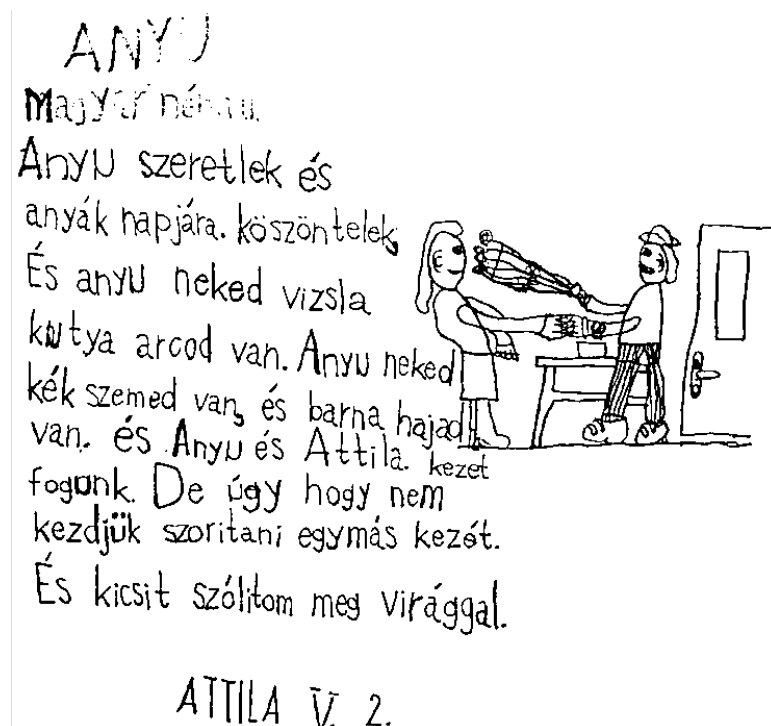 ANYU
Magyar
Anyu szeretlek és
anyák napjára. köszöntelek,
És anyu neked vizsla
kutya arcod van. Anyu neked
kék szemed van, és barna hajad
van. és Anyu és Attila. kezet
fogunk. De úgy hogy nem
kezdjük szoritani egymás kezét.
És kicsit szólitom meg virággal.
ATTILA V. 2.